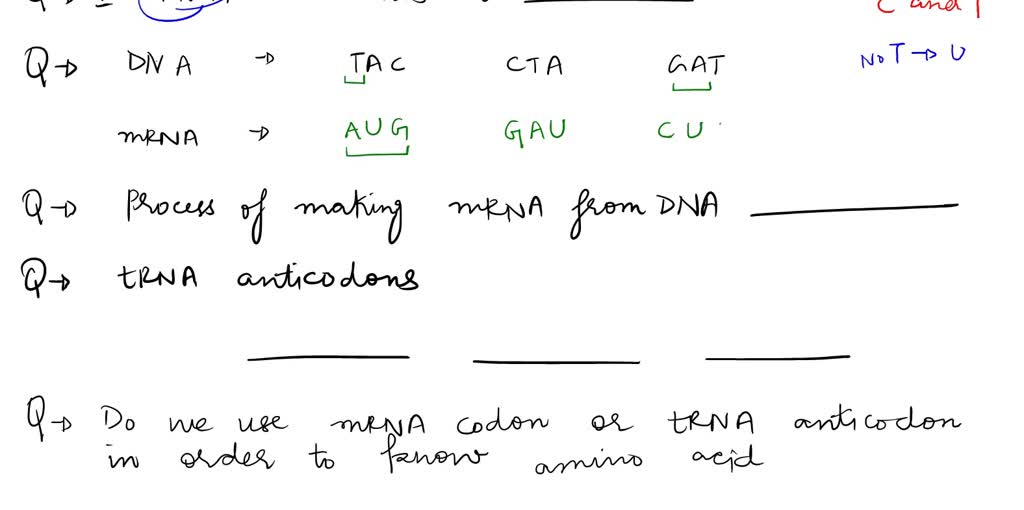 C and T
Q → DNA → TAC CTA GAT NOT → U
mRNA → AUG GAU CU
Q → Process of making mRNA from DNA
Q → tRNA anticodons
Q → Do we use mRNA codon or tRNA anticodon
in order to know amino acid